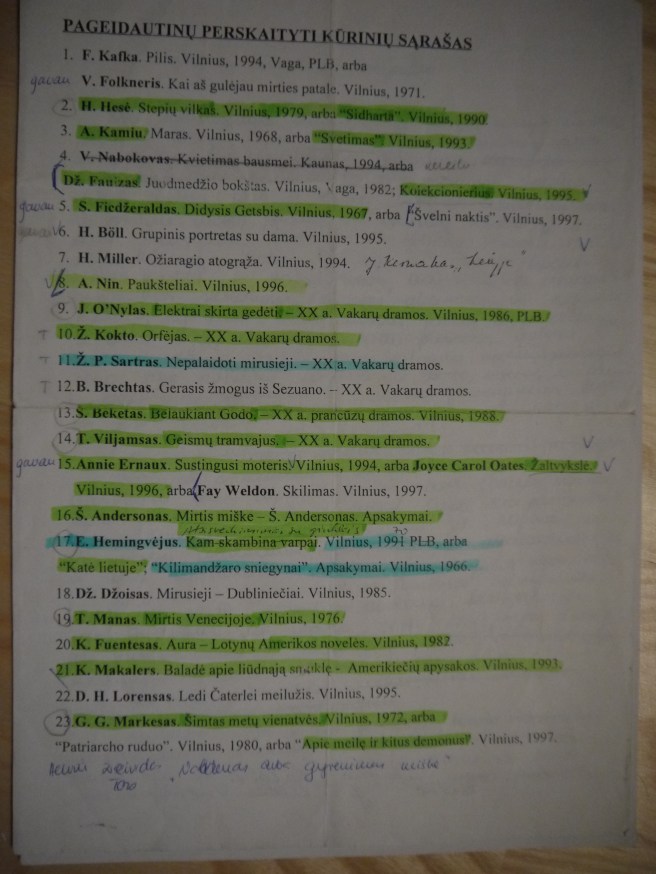 PAGEIDAUTINŲ PERSKAITYTI KŪRINIŲ SĄRAŠAS
1. F. Kafka. Pilis. Vilnius, 1994, Vaga, PLB, arba
gavau V. Folkneris. Kai aš gulėjau mirties patale. Vilnius, 1971.
2. H. Hesė. Stepių vilkas. Vilnius, 1979, arba “Sidharta”. Vilnius, 1990
3. A. Kamiu. Maras. Vilnius, 1968, arba “Svetimas” Vilnius, 1993.
4. V. Nabokovas. Kvietimas bausmei. Kaunas, 1994, arba
Dž. Faulzas. Juodmedžio bokštas. Vilnius, Vaga, 1982; Kolekcionierius. Vilnius, 1995. V
gavau 5. S. Ficdžeraldas. Didysis Getsbis. Vilnius. 1967, arba “Švelni naktis”. Vilnius, 1997.
6. H. Böll. Grupinis portretas su dama. Vilnius, 1995. V
7. H. Miller. Ožiaragio atogrąža. Vilnius, 1994.
V 8. A. Nin. Paukšteliai. Vilnius, 1996.
9. J. O'Nylas. Elektrai skirta gedėti. – XX a. Vakarų dramos. Vilnius, 1986, PLB.
T 10. Ž. Kokto. Orfėjas. – XX a. Vakarų dramos.
T 11. Ž. P. Sartras. Nepalaidoti mirusieji. – XX a. Vakarų dramos.
T 12. B. Brechtas. Gerasis žmogus iš Sezuano. – XX a. Vakarų dramos.
13. S. Beketas. Belaukiant Godo. – XX a. prancūzų dramos. Vilnius, 1988.
14. T. Viljamsas. Geismų tramvajus. – XX a. Vakarų dramos. V
gavau 15. Annie Ernaux. Sustingusi moteris. Vilnius, 1994, arba Joyce Carol Oates. Žaltvykslė. V
Vilnius, 1996, arba Fay Weldon. Skilimas. Vilnius, 1997.
16. Š. Andersonas. Mirtis miške – Š. Andersonas. Apsakymai.
17. E. Hemingvėjus. Kam skambina varpai. Vilnius, 1991 PLB, arba
“Katė lietuje”; “Kilimandžaro sniegynai”. Apsakymai. Vilnius, 1966.
18. Dž. Džoisas. Mirusieji – Dubliniečiai. Vilnius, 1985.
19. T. Manas. Mirtis Venecijoje. Vilnius, 1976.
20. K. Fuentesas. Aura – Lotynų Amerikos novelės. Vilnius, 1982.
21. K. Makalers. Baladė apie liūdnąją smuklę - Amerikiečių apysakos. Vilnius, 1993.
22. D. H. Lorensas. Ledi Čaterlei meilužis. Vilnius, 1995.
23. G. G. Markesas. Šimtas metų vienatvės. Vilnius, 1972, arba
“Patriarcho ruduo”. Vilnius, 1980, arba “Apie meilę ir kitus demonus”. Vilnius, 1997.
arba gyvenimas miške”